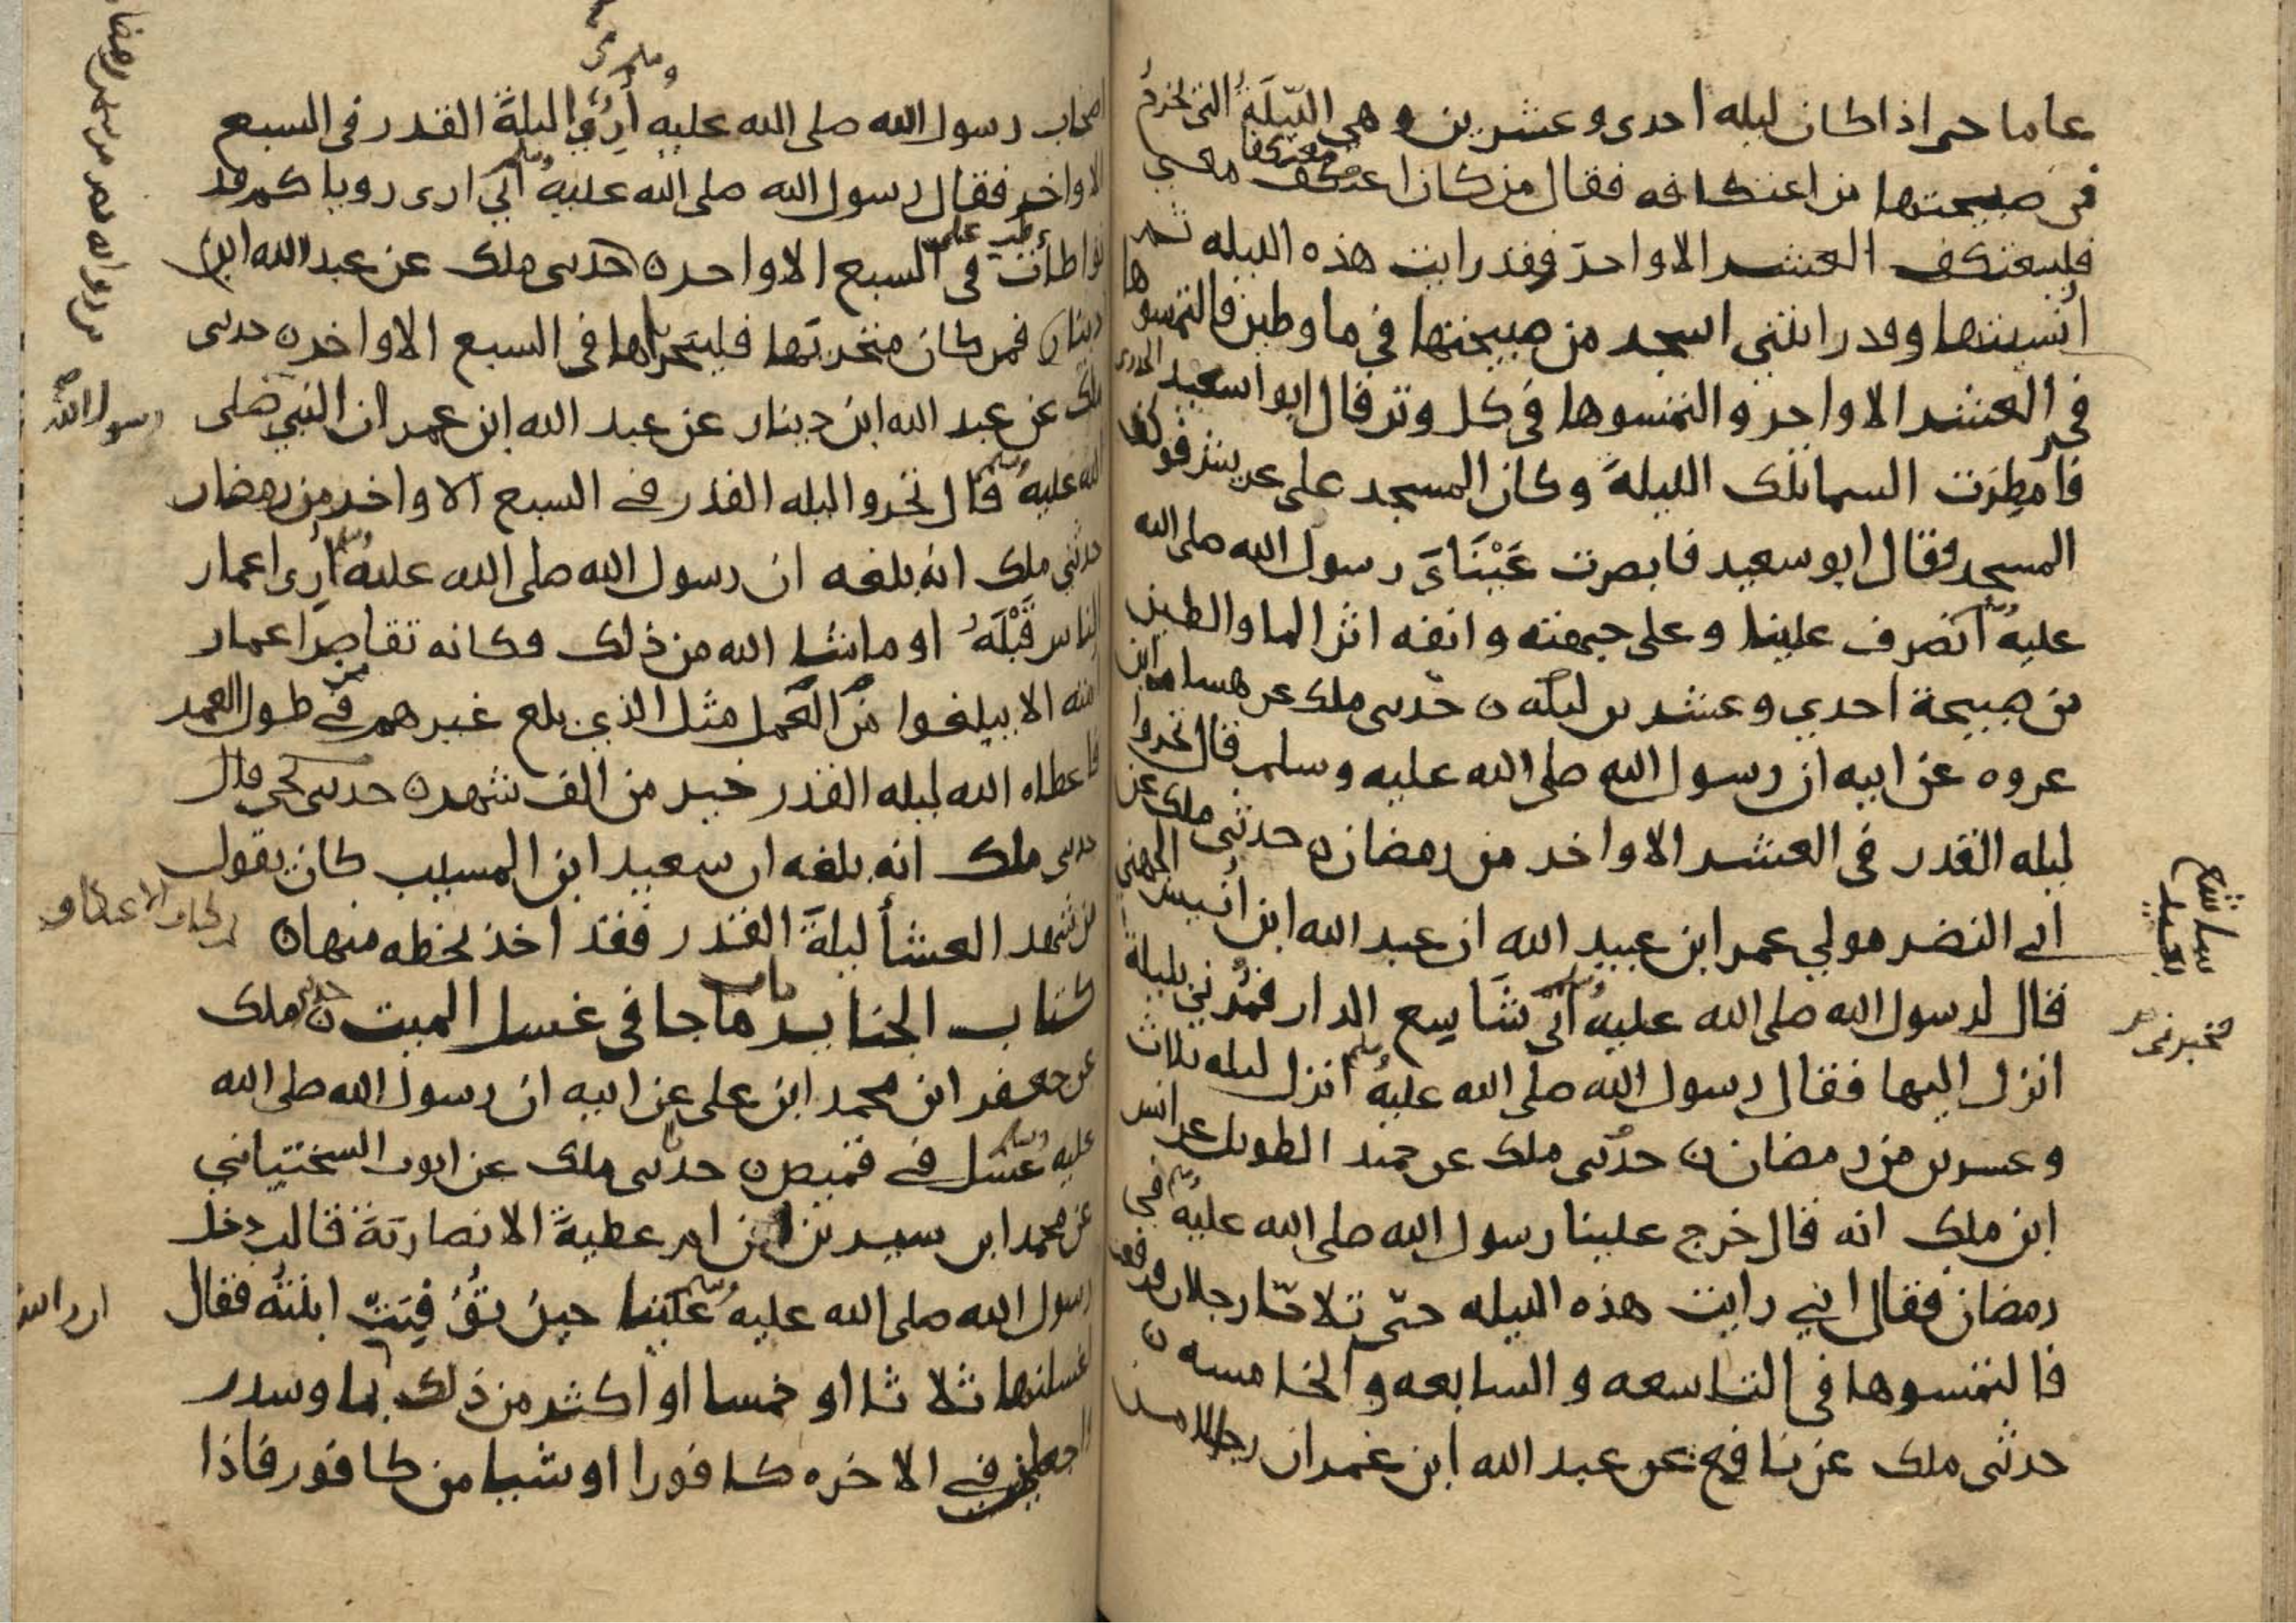 عاما حتى اذا كان ليله احدى وعشرين وهي اللّيلَةُ التي يخرجُ
في صبيحتها من اعتكافه فقال من كان اعتكف معي
معتكفا
فليعتكف العشر الاواخر فقد رايت هذه الليله ثم
أنسيتها وقد رايتني اسجد من صبيحتها في ما وطين فالتمسوها
في العشر الاواخر والتمسوها في كل وتر قال ابو سعيد الخدرى
فامطِرَت السما تلك الليلةَ وكان المسجد على عريش فوكف
المسجد فقال ابو سعيد فابصرت عَيْنَايَ رسول الله صلى الله
عليه وسلم انصرف علينا وعلى جبهته وانفه اثر الما والطين
من صبيحة احدي وعشرين ليله ن حدثنى ملك عن هسام ابن
عروه عن ابيه ان رسول الله صلى الله عليه وسلم قال تحروا
ليله القدر في العشر الاواخر من رمضان ن حدثني ملك عن
ابي النضر مولي عمر ابن عبيد الله ان عبد الله ابن أُنيس الجهني
قال لرسول الله صلى الله عليه وسلم انّى شَاسِع الدار فمُرْني بليلة
انزل اليها فقال رسول الله صلى الله عليه وسلم انزل ليله ثلاث
وعشرين من رمضان ن حدثنى ملك عن حميد الطويل عن انس
ابن ملك انه قال خرج علينا رسول الله صلى الله عليه وسلم في
رمضان فقال اني رايت هذه الليله حتّى تلاحّا رجلان فرفعت
فالتمسوها في التاسعه والسابعه والخامسه ن
حدثنى ملك عن نافع عن عبد الله ابن عمر ان رجالا من
شاسع
بعيد
فخبرنى
وسلم
اصحاب رسول الله صلى الله عليه أُرُوا ليلةَ القدر في السبع
الاواخر فقال رسول الله صلى الله عليه وسلم اني ارى روياكم قد
تواطأت في السبع الاواخر ن حدثنى ملك عن عبد الله ابن
دينار فمن كان متحريها فليتحراها في السبع الاواخر ن حدثنى
ملك عن عبد الله ابن دينار عن عبد الله ابن عمر ان النبي صلى
رسول الله
الله عليه وسلم قال تحروا ليله القدر في السبع الاواخر من رمضان
حدثني ملك انه بلغه ان رسول الله صلى الله عليه وسلم أُرِى اعمار
الناس قَبْلَهُ او ما شا الله من ذلك فكانه تقاصر اعمار
امته الا يبلغوا من العمل مثل الذي بلغ غيرهم في طول العمر
فاعطاه الله ليله القدر خير من الف شهر ن حدثنى يحيى قال
حدثنى ملك انه بلغه ان سعيد ابن المسيب كان يقول
من شهد العشأ ليلةَ القدر فقد اخذ بحظه منها ن
كتاب الجنايز باب ما جا في غسل الميت ن حدثنى ملك
عن جعفر ابن محمد ابن على عن ابيه ان رسول الله صلى الله
عليه وسلم غسّل في قميص ن حدثنى ملك عن ايوب السختياني
عن محمد ابن سيرين عن ام عطيةَ الانصاريّة قالت دخل
رسول الله صلى الله عليه وسلم علينا حين تُوُفِيَت ابنتُه فقال
اغسلنها ثلاثا او خمسا او اكثر من ذلك بما وسدر
واجعلن في الاخره كافورا او شيا من كافور فاذا